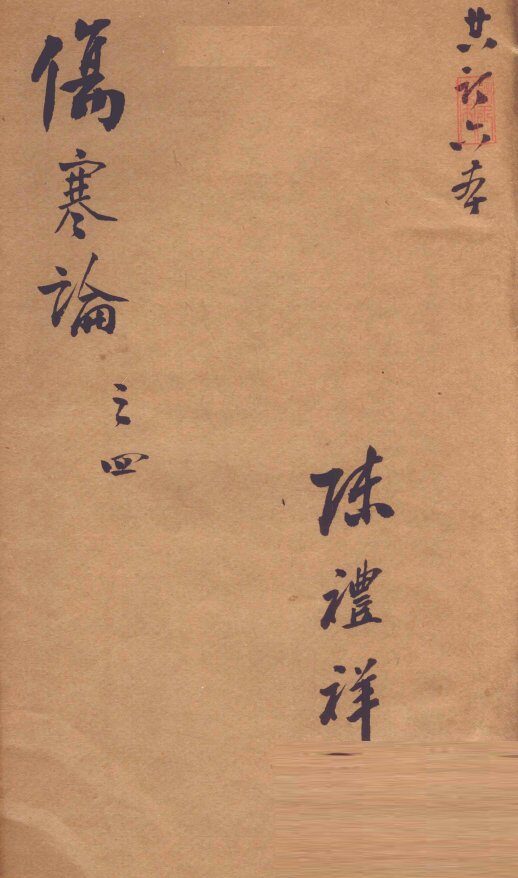 共訂六本
陳禮祥
傷寒論
之四